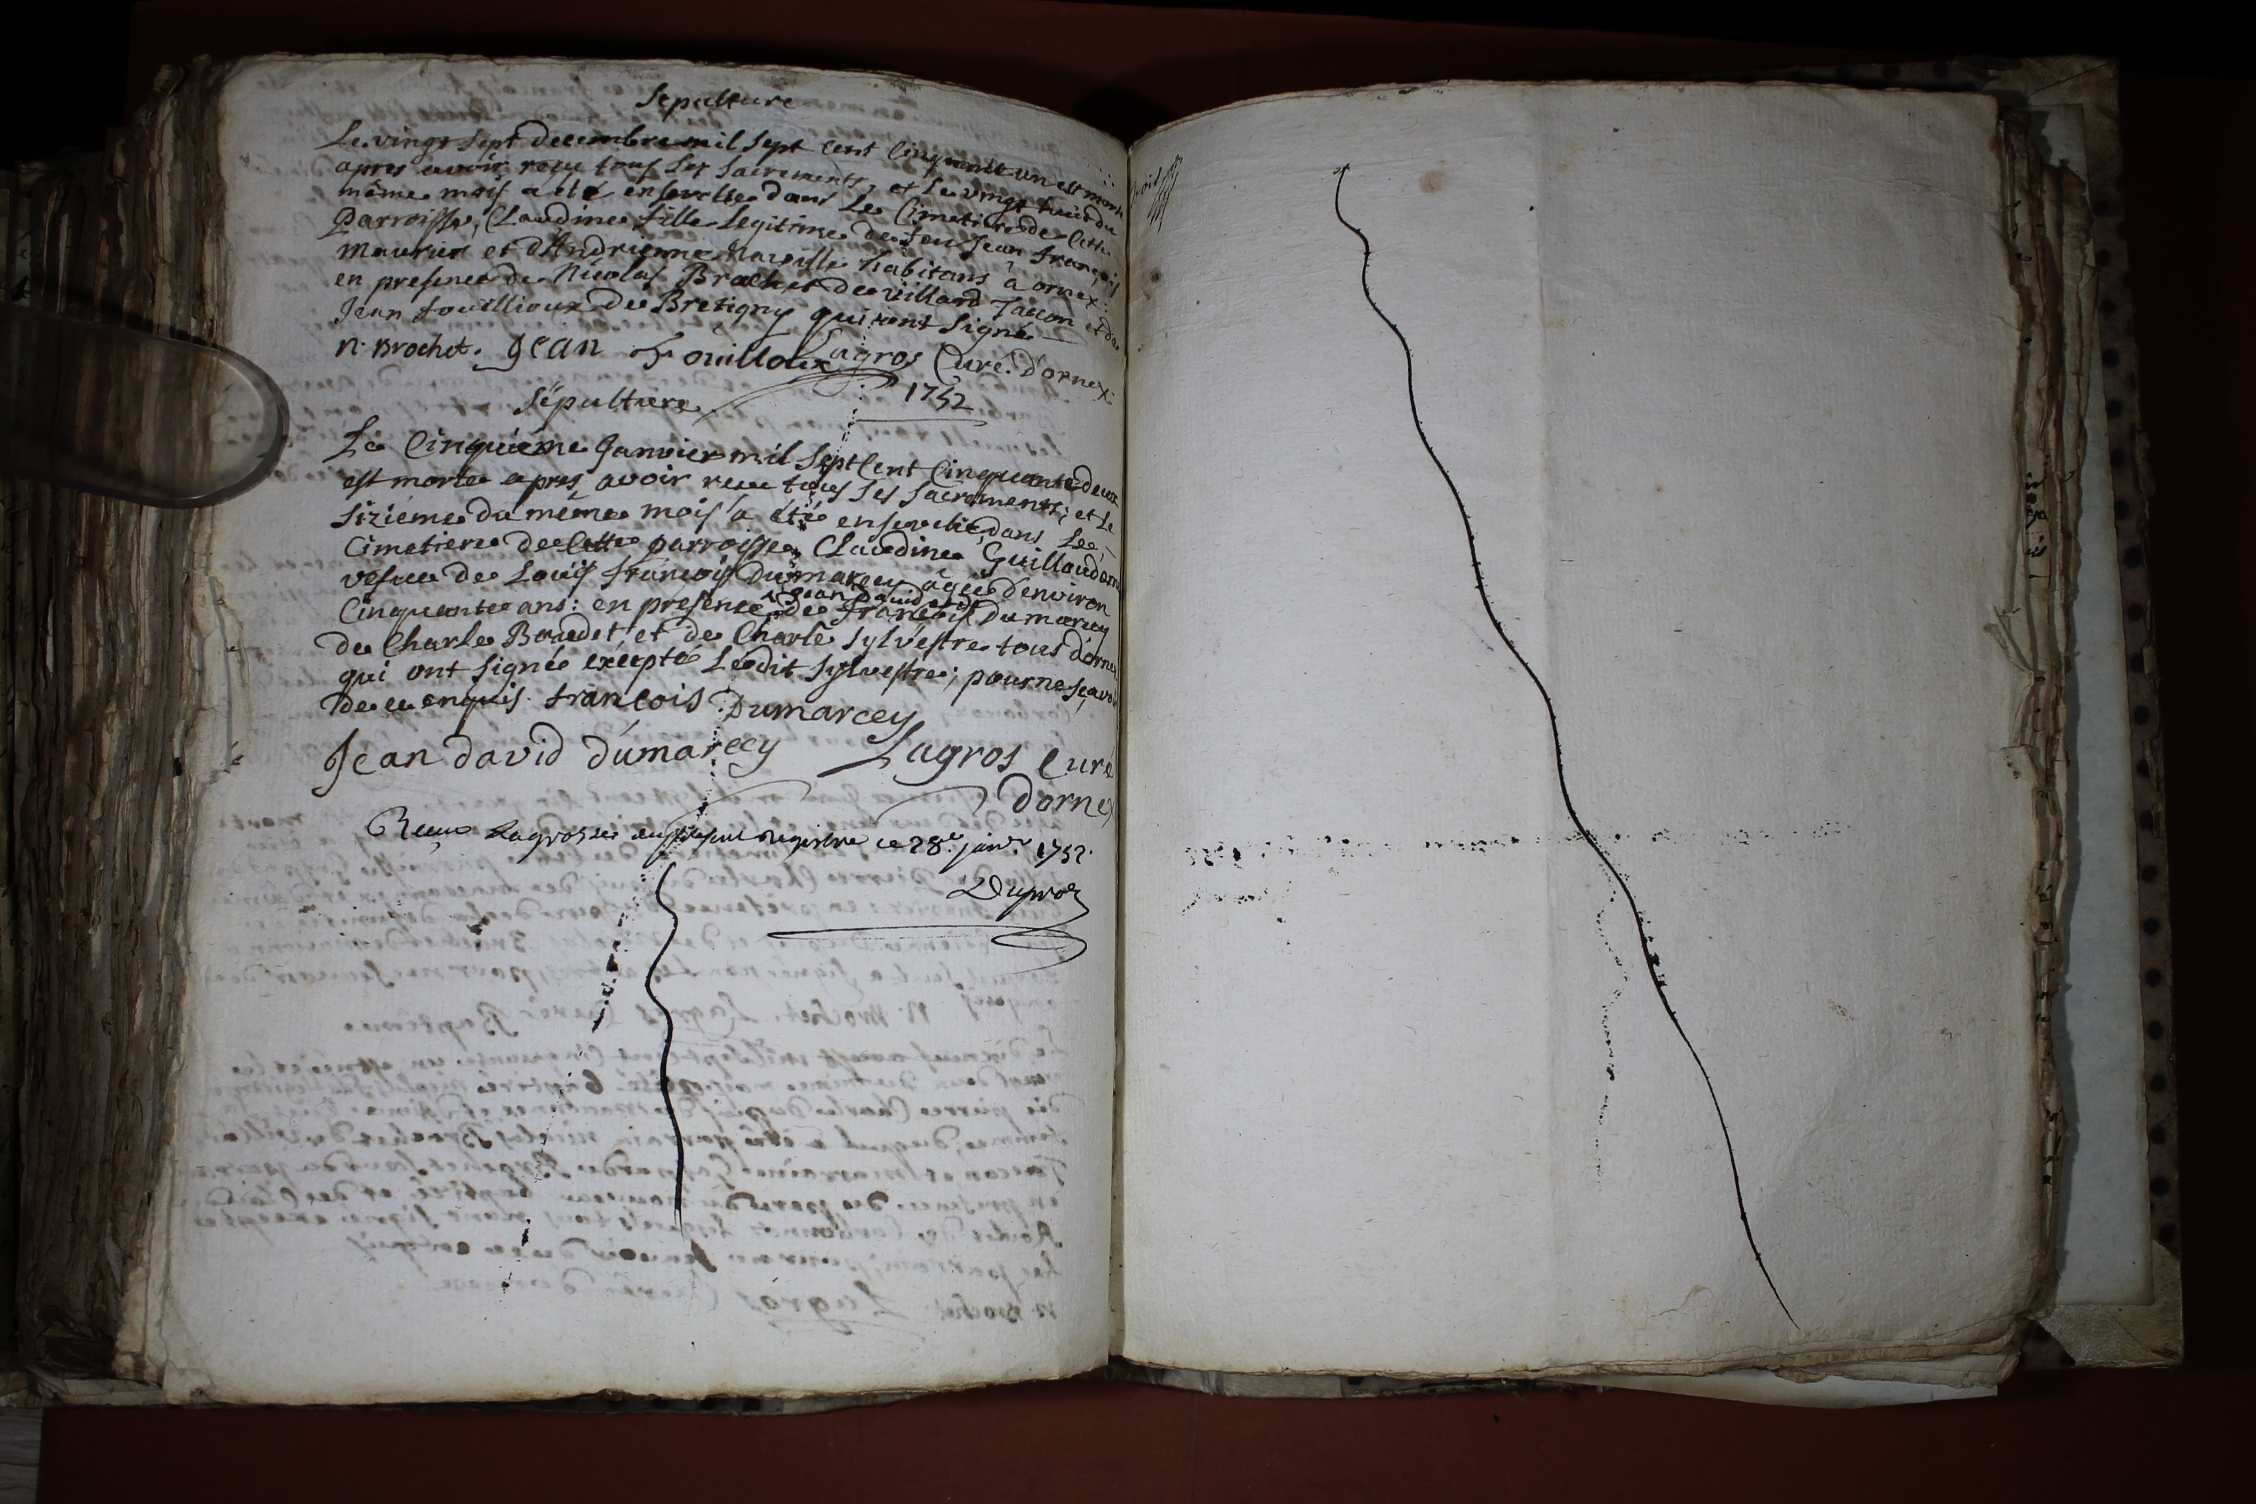 Sepulture
Le vingt sept decembre mil sept cent cinquante un est morte
apres avoir reçu tous ses sacrements, et le vingt huit du
même mois a été ensevelie dans le Cimetiere de cette
Parroisse, Claudine fille legitime de feu Jean françois
Meunier et d'Andrienne Naville habitans à ornex:
en presence de Nicolas Brochet de villard Tacon et de
Jean fouillioux de Bretigny qui ont signé
n. Brochet. Jean Fouilloux Lagros Curé d'ornex.
1752
Sépulture
Le Cinquiéme Janvier mil sept cent cinquante deux
est morte apres avoir reçu tous ses sacrements, et le
siziéme du méme mois a été ensevelie dans le
Cimetiere de cette parroisse Claudine Guillaud
vefve de Loüis françois Dumarcey agée d'environ
Cinquante ans: en presence de Jean David et de françois Dumarcey
de Charle Baudet et de Charle Sylvestre tous d'ornex
qui ont signé excepté Ledit Sylvestre; pour ne sçavoir
de ce enquis. françois Dumarcey
Jean david dumarcey Lagros Curé
d'ornex
Reçu la grosse du present registre ce 28e janvr 1752.
Duproz